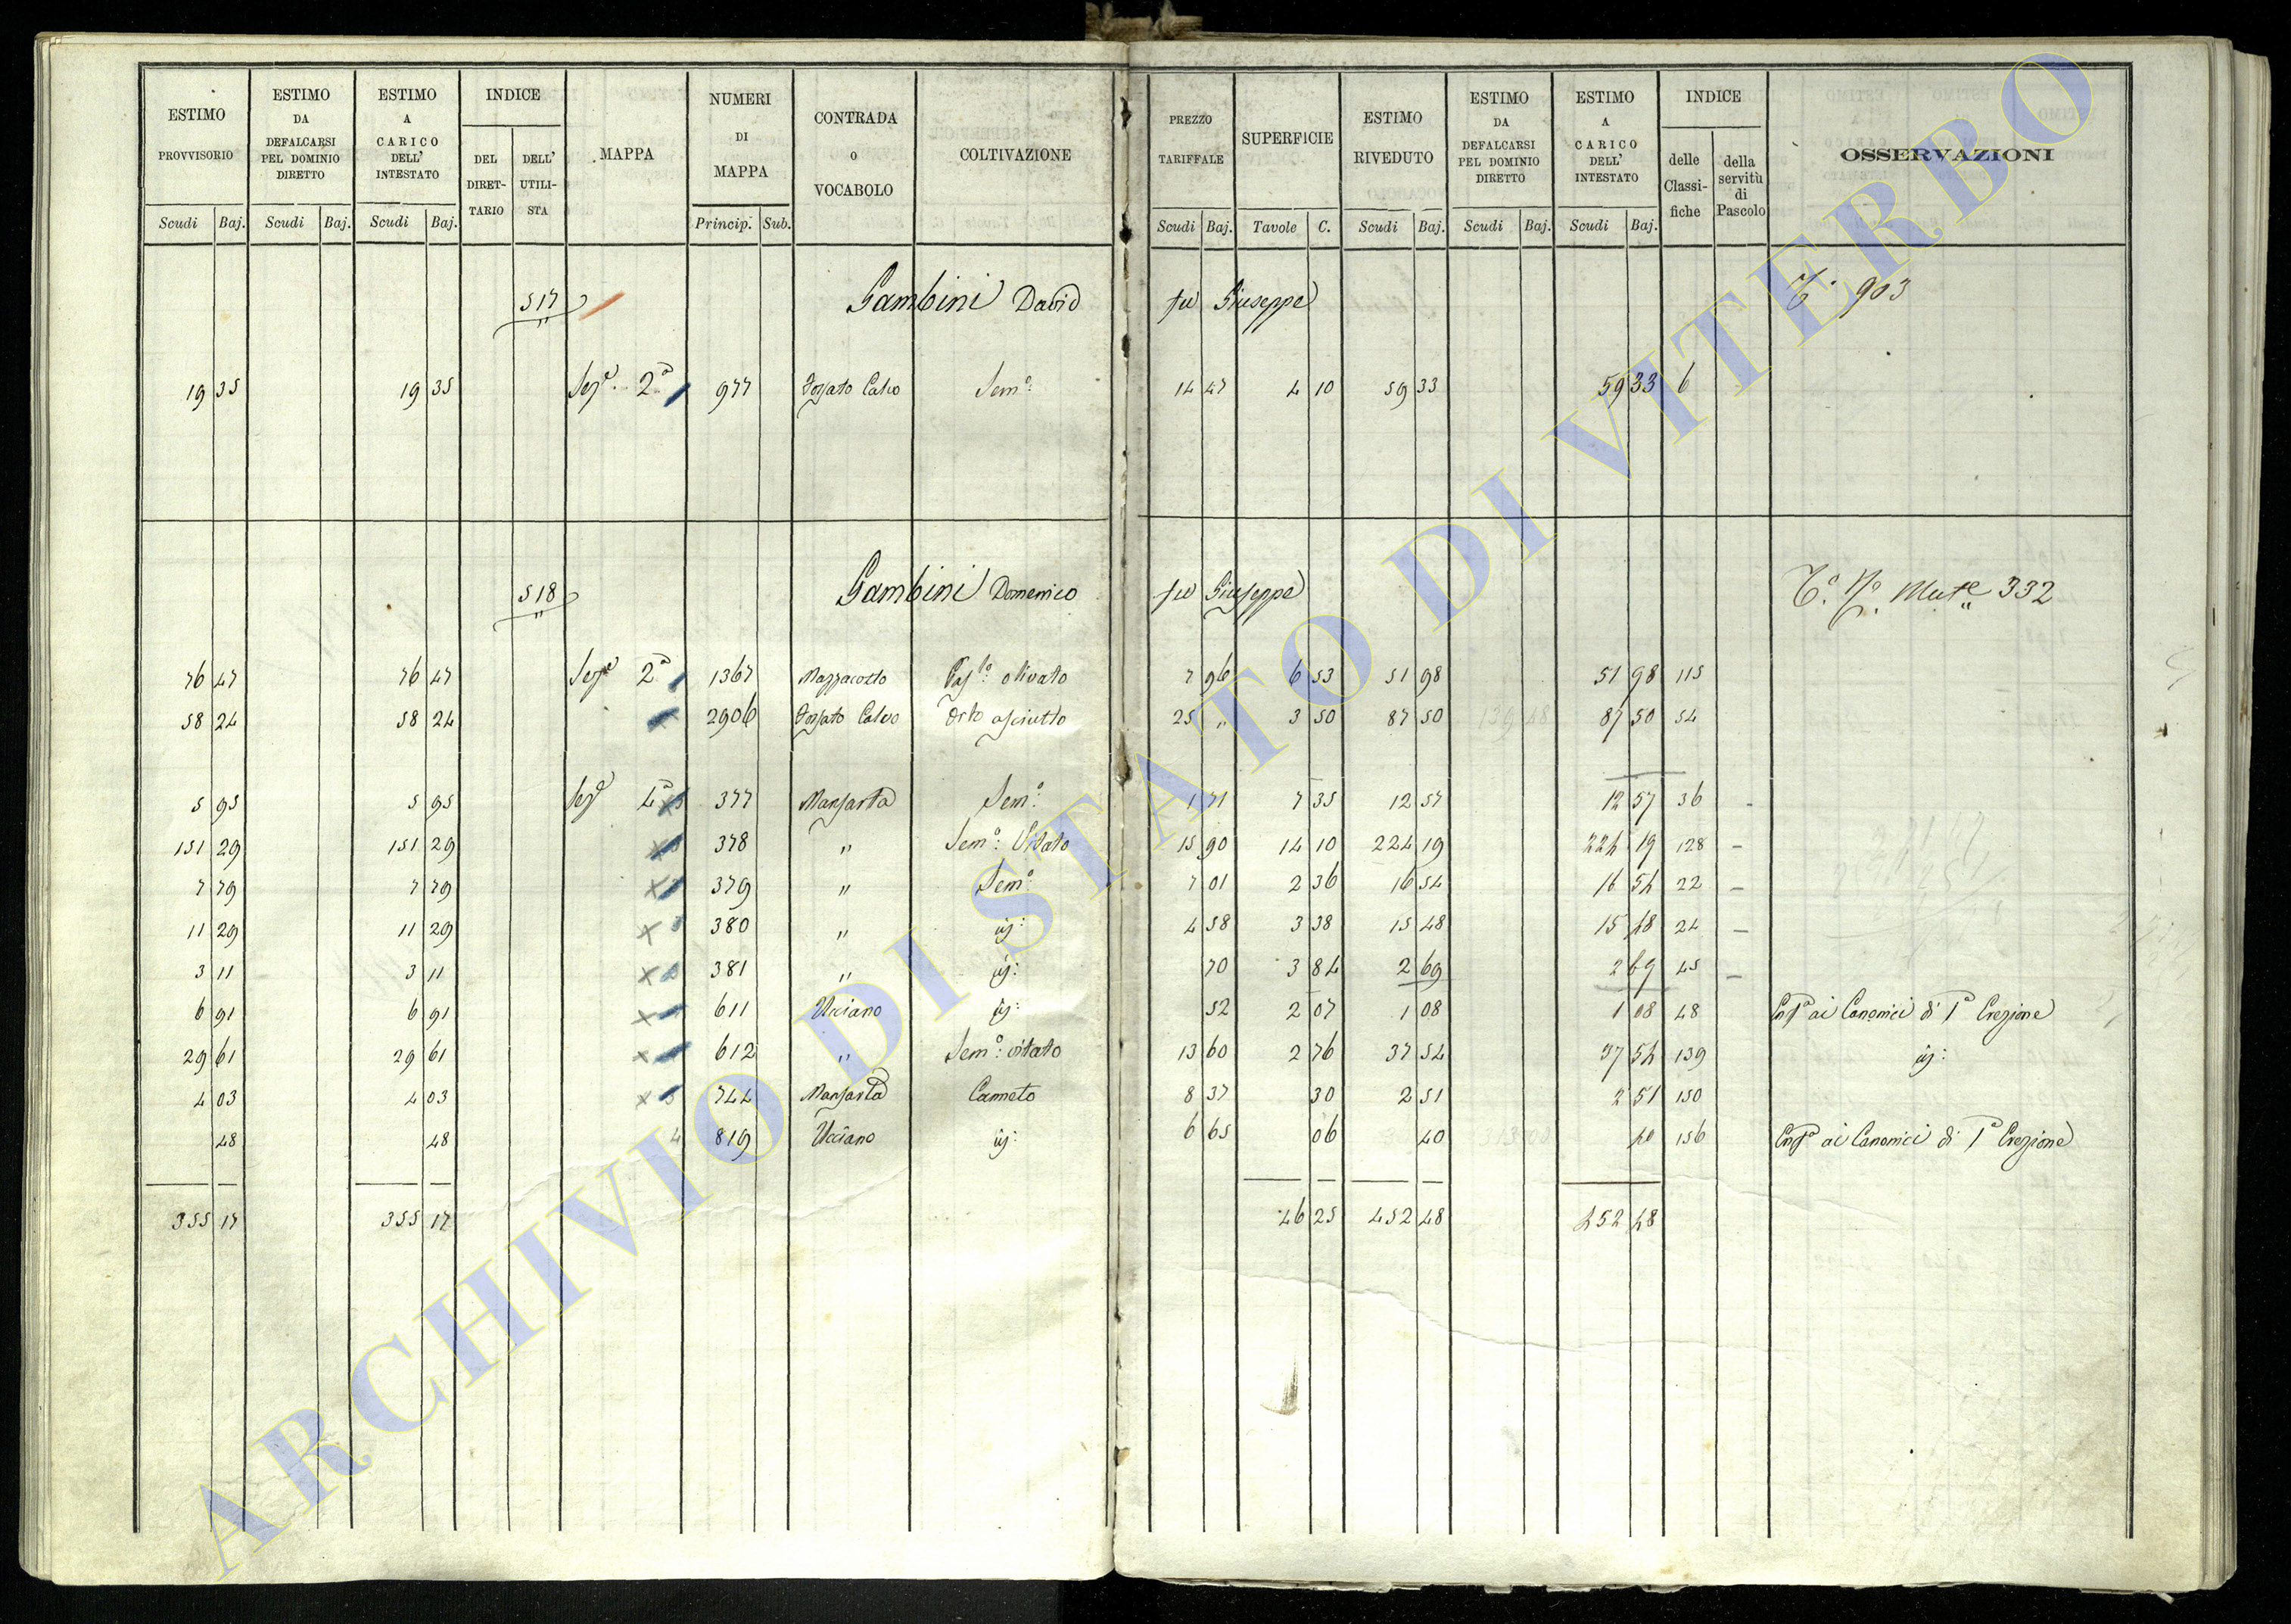 ESTIMO PROVVISORIO | ESTIMO DA DEFALCARSI PEL DOMINIO DIRETTO | ESTIMO A CARICO DELL' INTESTATO | INDICE DEL DIRETTARIO | DELL' UTILISTA | MAPPA | NUMERI DI MAPPA | CONTRADA O VOCABOLO | COLTIVAZIONE | PREZZO TARIFFALE | SUPERFICIE | ESTIMO RIVEDUTO | ESTIMO DA DEFALCARSI PEL DOMINIO DIRETTO | ESTIMO A CARICO DELL' INTESTATO | INDICE delle Classifiche | della servitù di Pascolo | OSSERVAZIONI
Scudi Baj. Scudi Baj. Scudi Baj. Princip. Sub. Scudi Baj. Tavole C. Scudi Baj. Scudi Baj. Scudi Baj.
517 Gambini David fu Giuseppe 903
19 35 19 35 Seze 2a 977 Fossato Calvo Semo: 14 47 4 10 59 33 59 33 6
518 Gambini Domenico fu Giuseppe To. No. Mute 332
76 47 76 47 Seze 2a 1367 Mazzacotto Paslo: olivato 7 96 6 53 51 98 51 98 115
58 24 58 24 2906 Fossato Calvo Orto asciutto 25 " 3 50 87 50 87 50 54
5 95 5 95 Seze 4a 377 Mansarta Semo: 1 71 7 35 12 57 12 57 36 -
151 29 151 29 378 " Semo: Vitato 15 90 14 10 224 19 224 19 128 -
7 79 7 79 379 " Semo: 7 01 2 36 16 54 16 54 22 -
11 29 11 29 380 " id: 4 58 3 38 15 48 15 48 24 -
3 11 3 11 381 " id: 70 3 84 2 69 2 69 45 -
6 91 6 91 611 Ucciano id: 52 2 07 1 08 1 08 48 ai Canonici di 1a Erezione
29 61 29 61 612 " Semo: vitato 13 60 2 76 37 54 37 54 139 id:
4 03 4 03 744 Mansarta Canneto 8 37 30 2 51 2 51 150
48 48 4 819 Ucciano id: 6 65 06 40 40 156 ai Canonici di 1a Erezione
355 17 355 17 46 25 452 48 452 48
ARCHIVIO DI STATO DI VITERBO